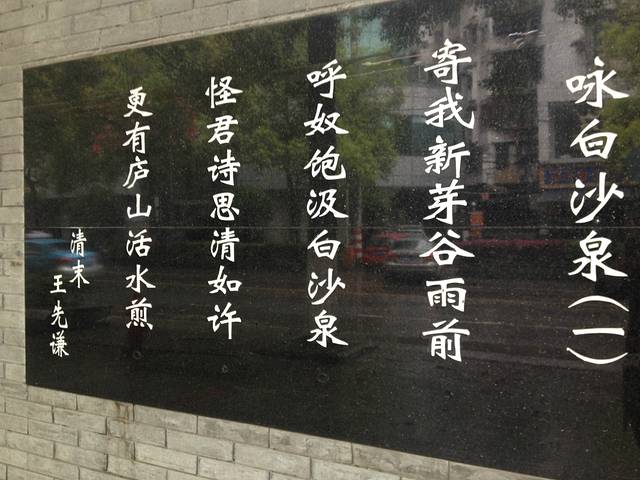 咏白沙泉(一)
寄我新芽谷雨前
呼奴饱汲白沙泉
怪君诗思清如许
更有庐山活水煎
清末
王先谦